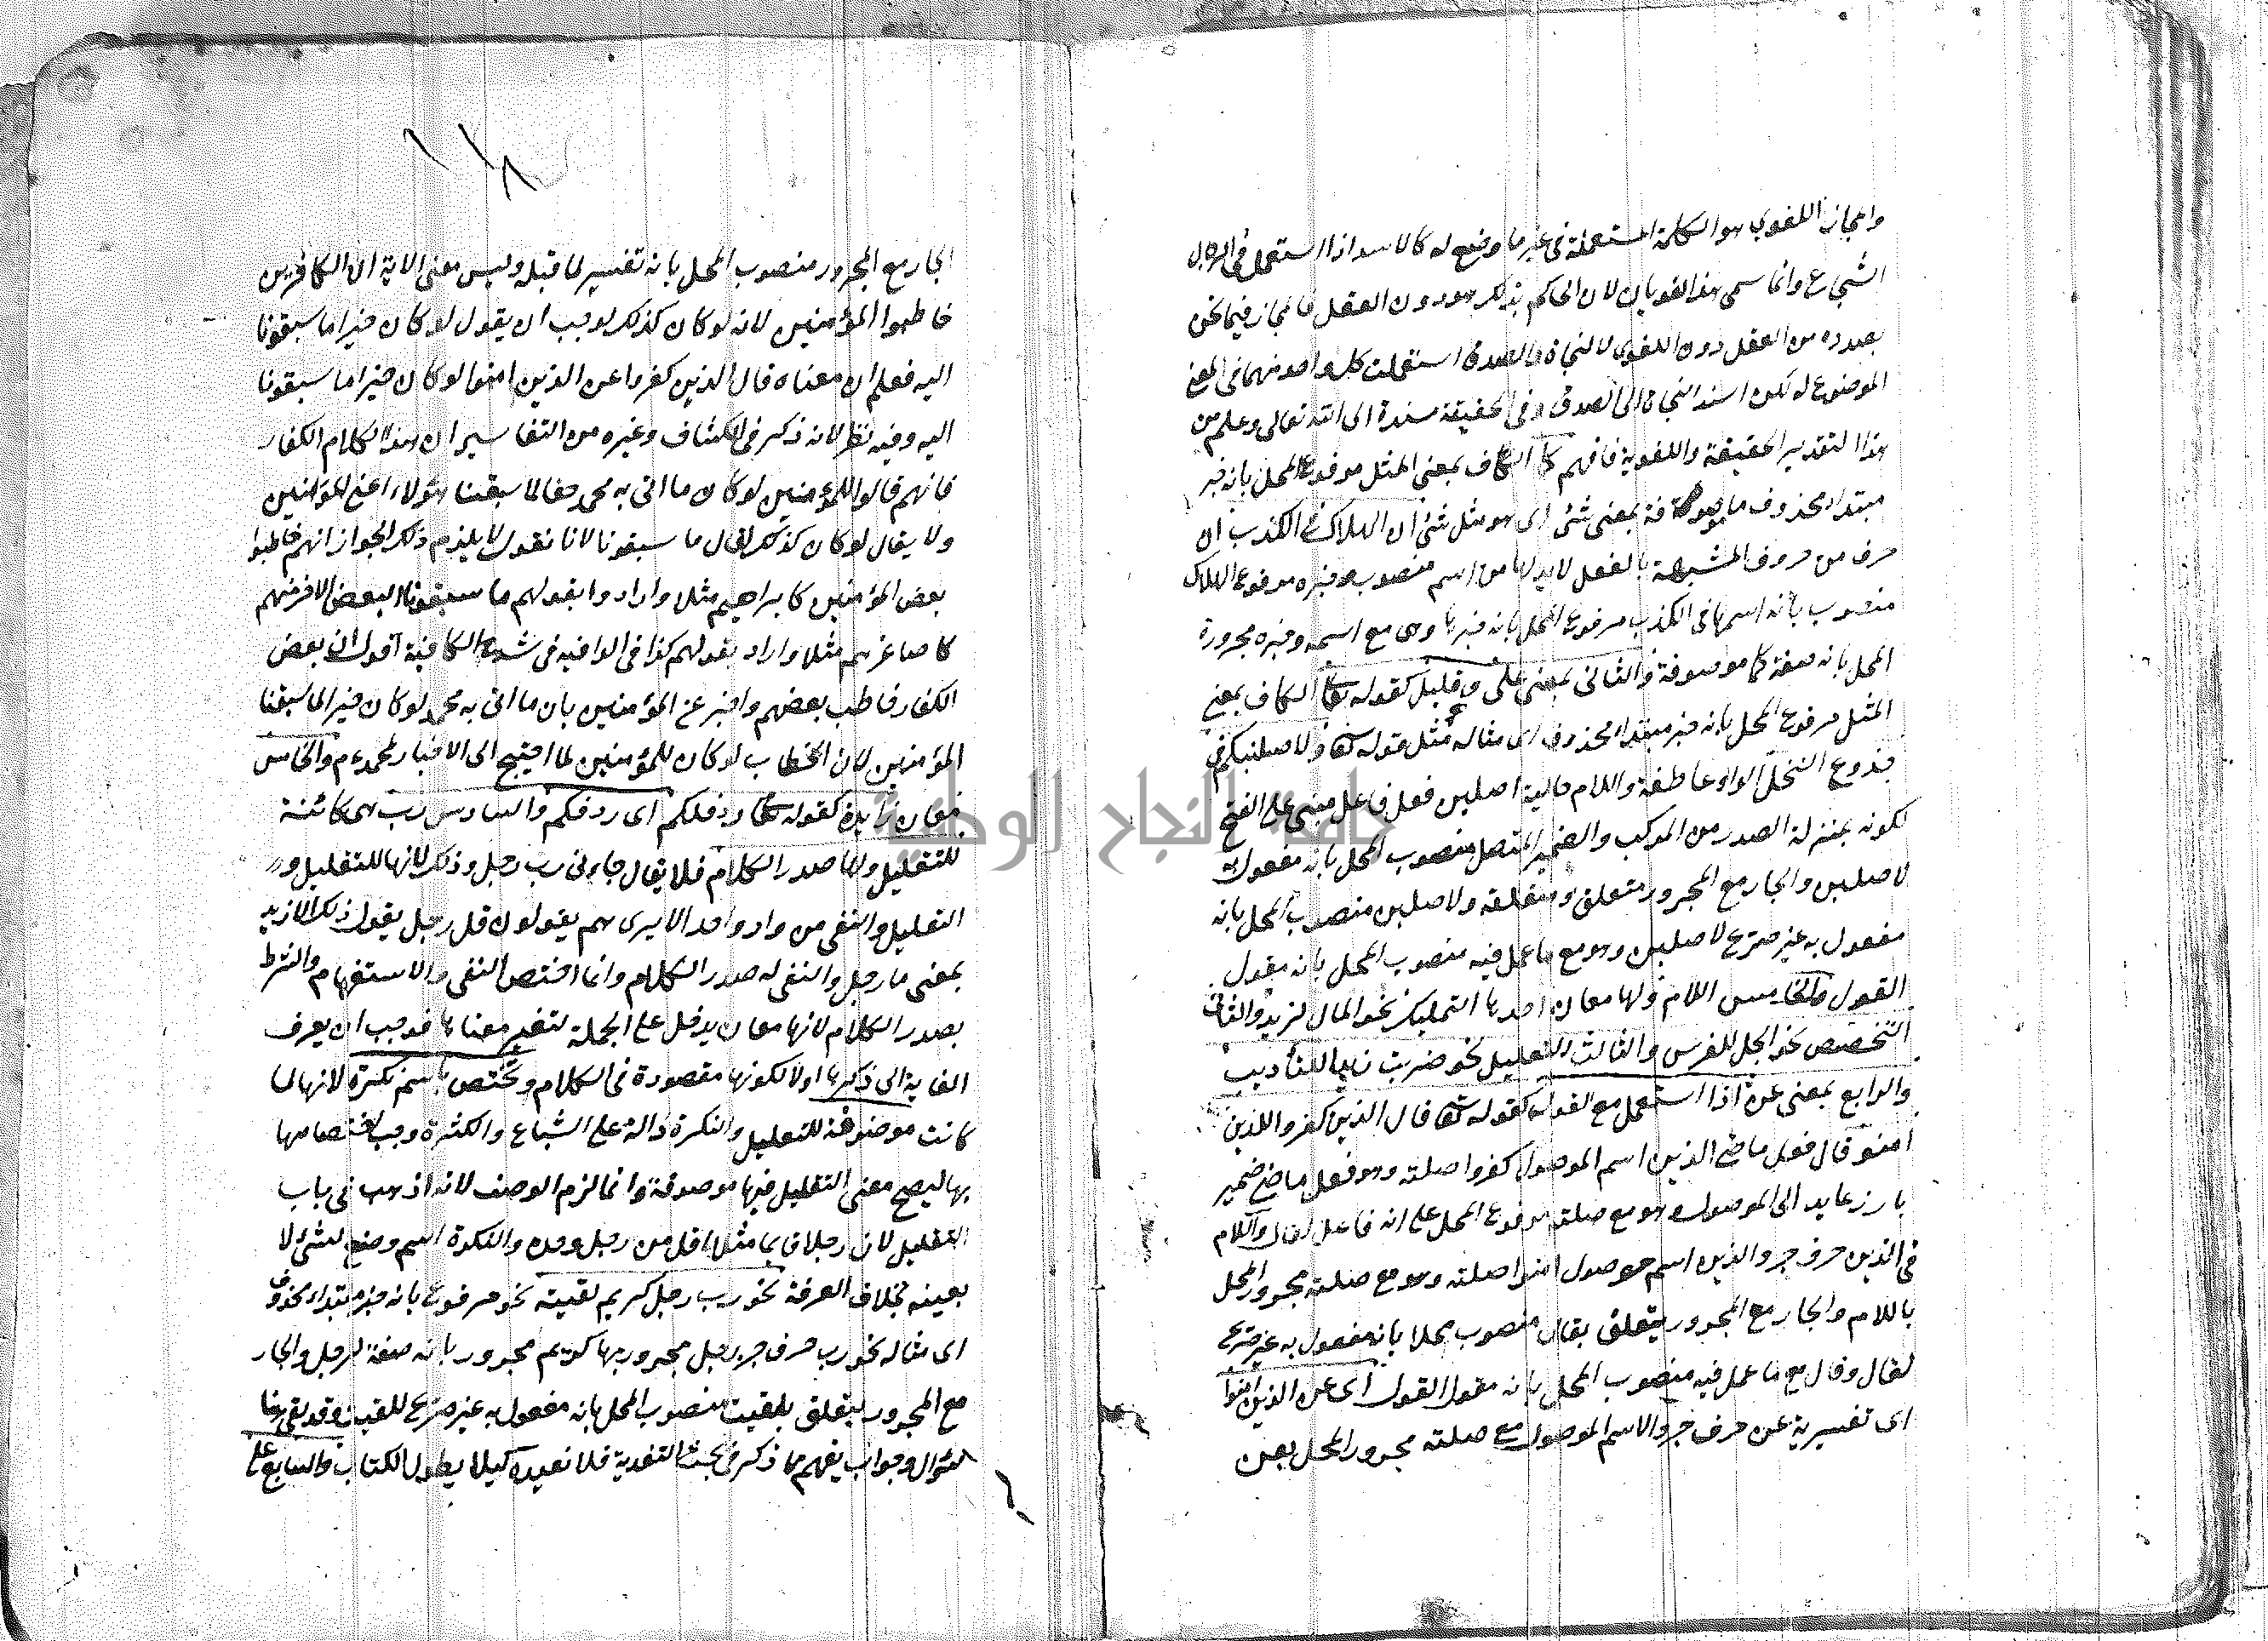 والمجاز اللغوي هو الكلمة المستعملة في غير ما وضع له كالاسد اذا استعمل في الرجل
الشجاع وانما سمي هذا لغويا لان الحاكم بذلك هو دون العقل فالمجاز فيما نحن
بصدده من العقل دون اللغوي لا لنجاة والصدق استعملت كل واحد منهما في المعنى
الموضوع له لكن اسند النجاة الى الصدق وفي الحقيقة مسندة الى الله تعالى وعلم من
هذا التقدير الحقيقة واللغوية فافهم كما الكاف بمعنى المثل مرفوع المحل بانه خبر
مبتداء محذوف ما موصوفة بمعنى شئ اى هو مثل شئ ان الهلاك في الكذب ان
حرف من حروف المشبهة بالفعل لا بد لها من اسم منصوب وخبره مرفوع الهلاك
منصوب بانه اسمها في الكذب مرفوع المحل بانه خبرها وهى مع اسمه وخبره مجرورة
المحل بانه صفة لما موصوفة والثاني بمعنى على وقليل كقوله تعالى الكاف بمعنى
المثل مرفوع المحل بانه خبر مبتداء محذوف اى مثاله مثل قوله تعالى ولاصلبنكم في
جذوع النخل الواو عاطفة واللام حالية اصلبن فعل فاعل مبني على الفتح
لكونه بمنزلة الصدر من المركب والضمير المتصل منصوب المحل بانه مفعول به
لاصلبن والجار مع المجرور متعلق ومتعلقه ولاصلبن منصوب المحل بانه
مفعول به غير صريح لاصلبن وهو مع ما عمل فيه منصوب المحل بانه مقول
القول والخامس اللام ولها معان احدها التمليك نحو المال لزيد والثاني
التخصيص نحو الجل للفرس والثالث للتعليل نحو ضربت زيدا للتأديب
والرابع بمعنى عن اذا استعمل مع القول كقوله تعالى قال الذين كفروا للذين
امنو قال فعل ماض الذين اسم الموصول كفروا صلته وهو فعل ماض ضمير
بارز عايد الى الموصول وهو مع صلته مرفوع المحل على انه فاعل لقال واللام
في الذين حرف جر والذين اسم موصول امنوا صلته وهو مع صلته مجرور المحل
باللام والجار مع المجرور يتعلق بقال منصوب محلا بانه مفعول به غير صريح
لقال وقال مع ما عمل فيه منصوب المحل بانه مقول القول اى عن الذين امنوا
اى تفسيرية عن حرف جر والاسم الموصول مع صلته مجرور المحل بعن
١١٨
الجار مع المجرور منصوب المحل بانه تفسير لما قبله وليس معنى الاية ان الكافرين
خاطبوا المؤمنين لانه لو كان كذلك لوجب ان يقول لو كان خيرا ما سبقونا
اليه فعلم ان معناه قال الذين كفروا عن الذين امنوا لو كان خيرا ما سبقونا
اليه وفيه نظر لانه ذكر في الكشاف وغيره من التفاسير ان هذا الكلام الكفار
فانهم قالوا للمؤمنين لو كان ما اتى به محمد حقا لما سبقنا هؤلاء اعنى المؤمنين
ولا يقال لو كان كذلك لقال ما سبقونا لانا نقول لا يلزم ذلك لجواز انهم خاطبوا
بعض المؤمنين كابراهيم مثلا وارادوا بقولهم ما سبقونا البعض الاخر منهم
كاصاغرهم مثلا واراد بقولهم كذا في الوافيه في شرح الكافية اقول ان بعض
الكفار خاطب بعضهم واخبر عن المؤمنين بان ما اتى به محمد لو كان خيرا لما سبقنا
المؤمنين لان الخطاب لو كان للمؤمنين لما احتيج الى الاخبار لمحمد ءم والخامس
معان زايدة كقوله تعالى ردفلكم اى ردفكم والسادس رب هى كائنة
للتقليل ولها صدر الكلام فلا يقال جاءنى رب رجل وذلك لانها للتقليل و
التقليل والنفي من واد واحد الا يرى هم يقولون قل رجل يقول ذلك الا زيد
بمعنى ما رجل والنفى له صدر الكلام وانما اختص النفى والاستفهام والشرط
بصدر الكلام لانها معان يدخل على الجملة لتغير معناها فوجب ان يعرف
الغاية الى ذكرها اولا لكونها مقصودة في الكلام وتختص باسم نكرة لانها لما
كانت موضوعة للتقليل والنكرة دالة على الشياع والكثرة وجب اختصاصها
بها ليصح معنى التقليل فيها موصوفة وانما لزم الوصف لانه اذهب في باب
التقليل لان رجلا قايما مثلا اقل من رجل وحده والنكرة اسم وضع لشئ لا
بعينه بخلاف المعرفة نحو رب رجل كريم لقيته نحو مرفوع بانه خبر مبتداء محذوف
اى مثاله نحو رب حرف جر رجل مجرور بها كريم مجرور بانه صفة لرجل والجار
مع المجرور يتعلق بلقيت منصوب المحل بانه مفعول به غير صريح للقيت وقد بقى هنا
سؤال وجواب يفهم مما ذكر في بحث التعدية فلا نعيده كيلا يطول الكتاب والسابع على